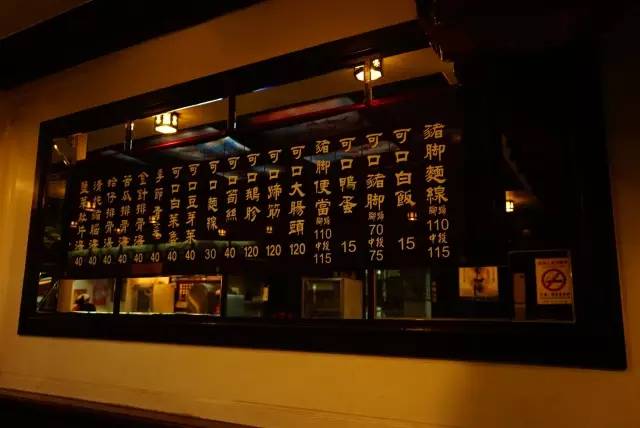 豬脚麵線 110 中段 115
可口白飯 15
可口豬脚 70 中段 75
可口鴨蛋 15
豬脚便當 110 中段 115
可口大腸頭 120
可口蹄筋 120
可口鵝胗 120
可口筍絲 40
可口麵線 30
可口豆芽菜 40
可口白菜 40
季節青菜 40
金針排骨湯 40
苦瓜排骨湯 40
蛤仔排骨湯 40
豬腦湯 40
肚片湯 40